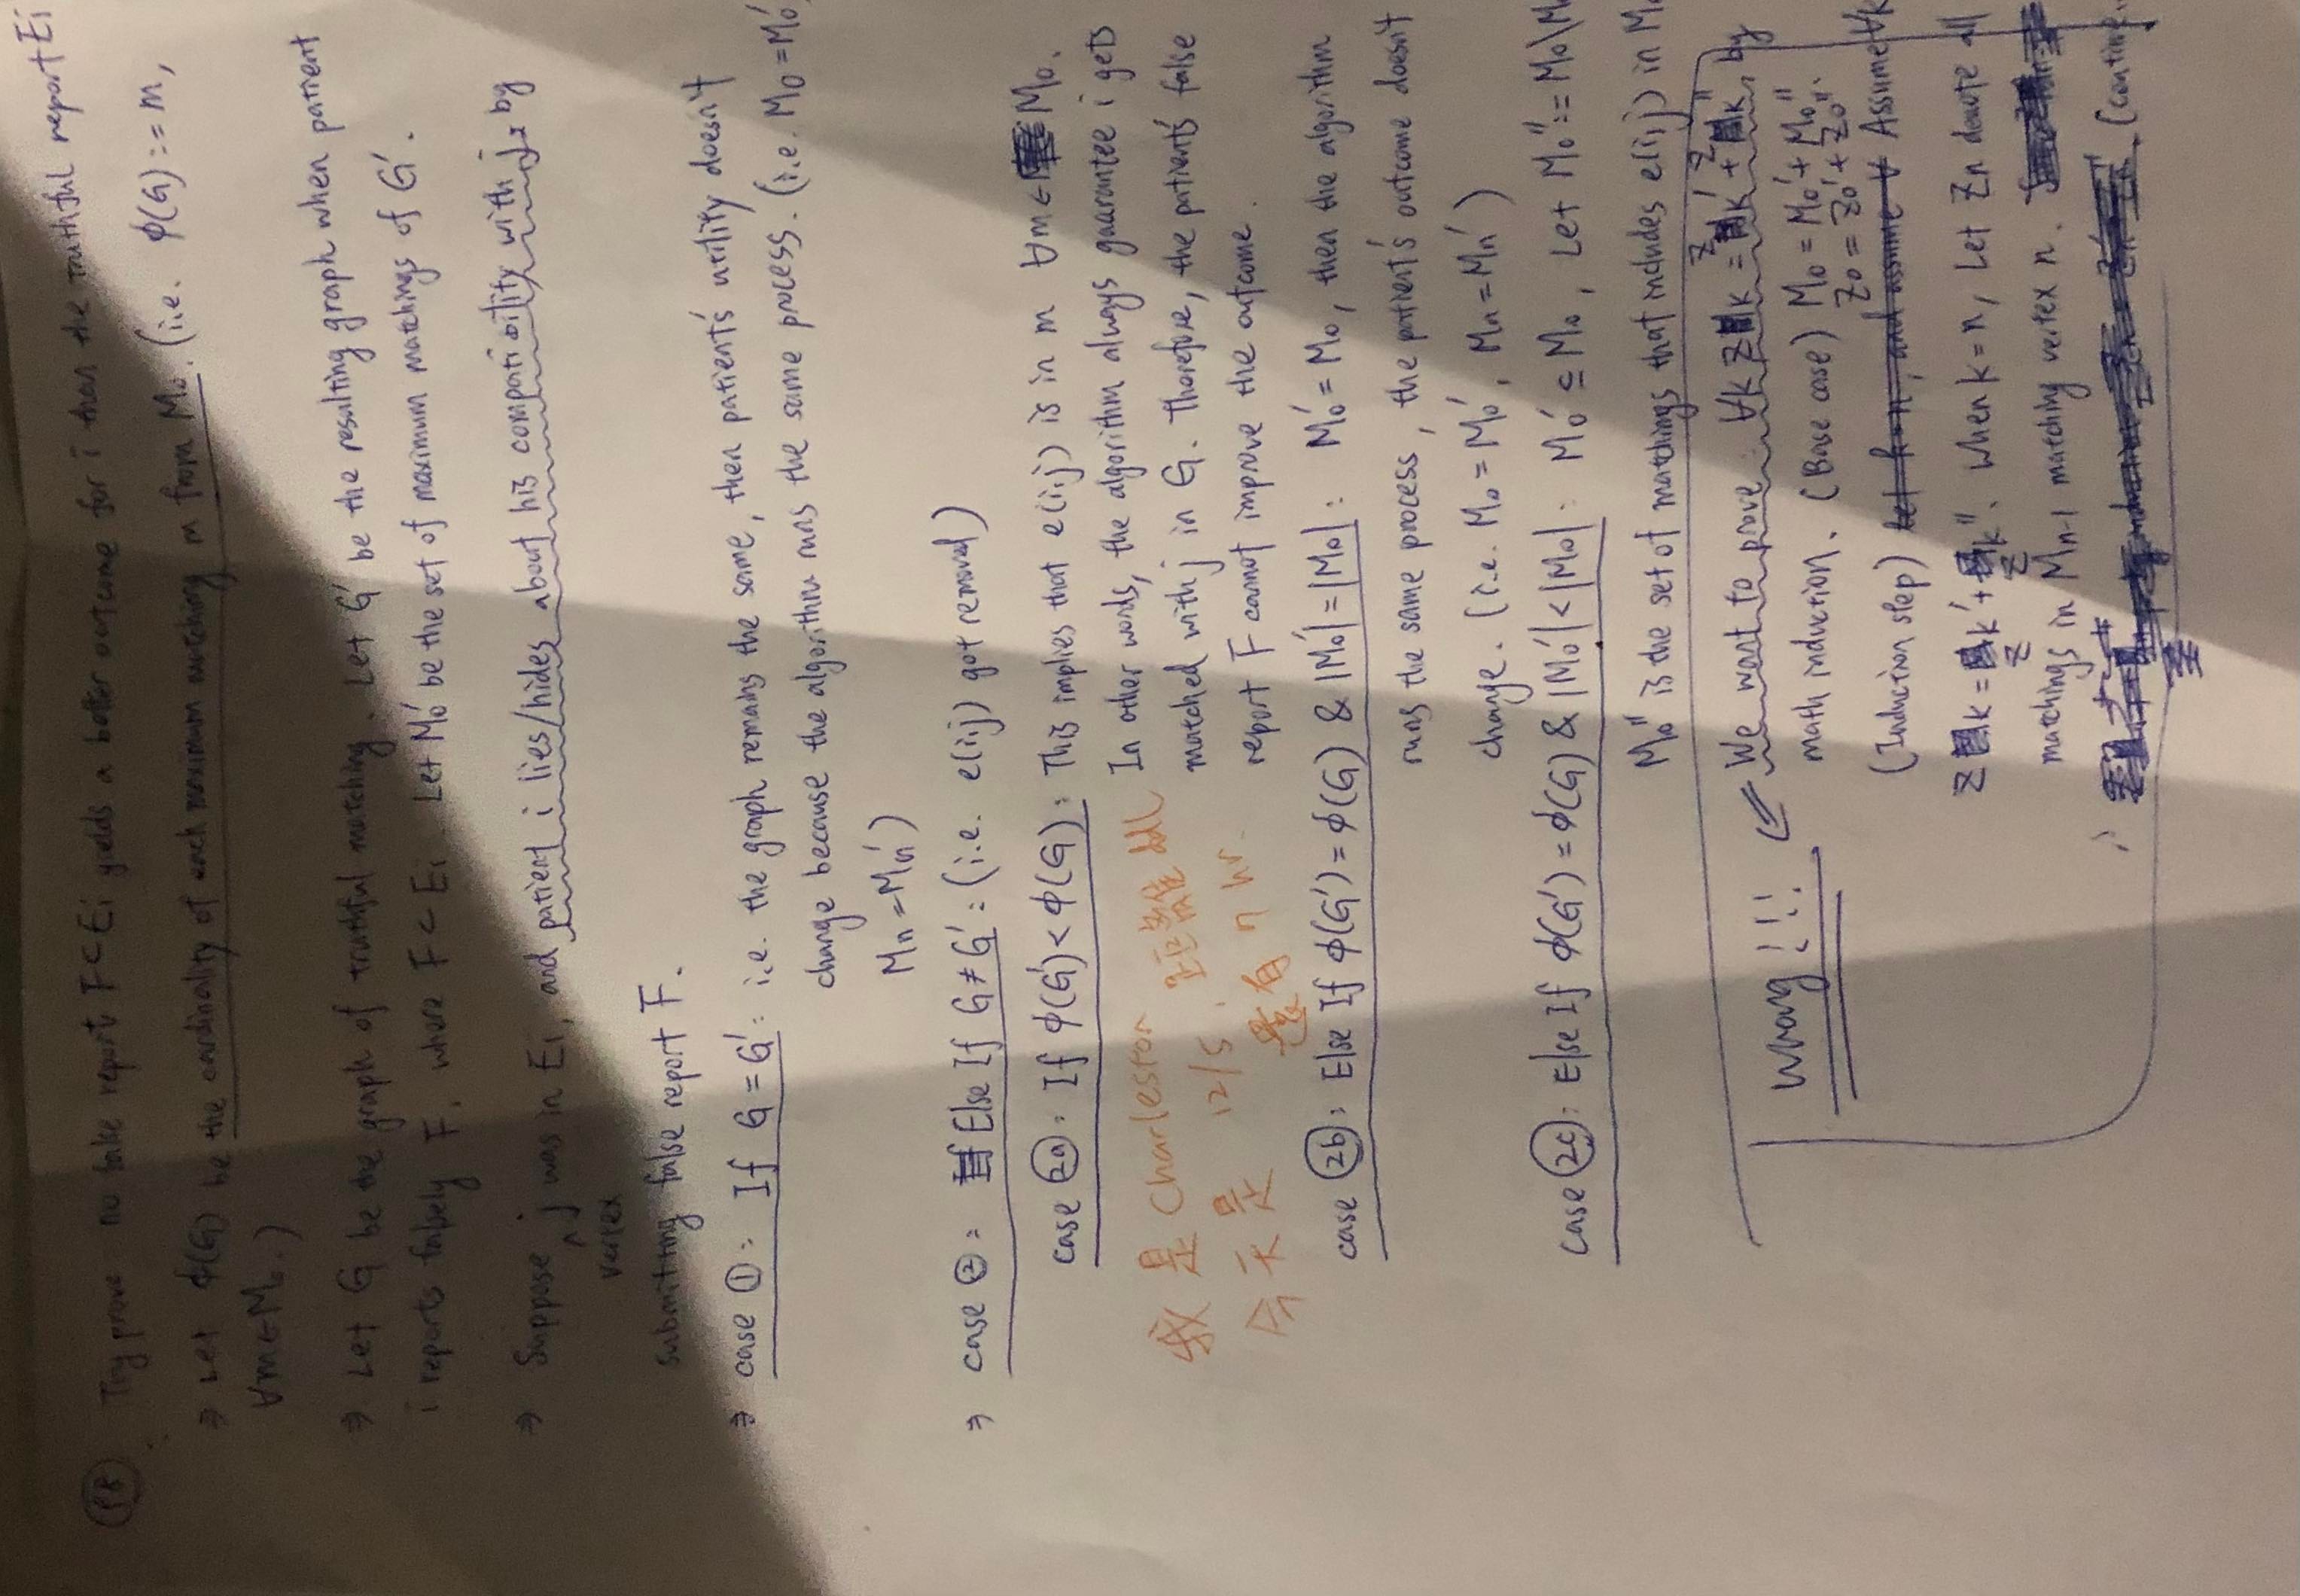 P8 Try prove: no fake report F⊂Ei yields a better outcome for i than the truthful report Ei
⇒ Let ϕ(G) be the cardinality of each maximum matching m from M₀. (i.e. ϕ(G):=m,
∀m∈M₀.)
⇒ Let G be the graph of truthful matching. Let G' be the resulting graph when patient
i reports falsely F, where F⊂Ei. Let M₀' be the set of maximum matchings of G'.
⇒ Suppose j was in Ei, and patient i lies/hides about his compatibility with j by
vertex
submitting false report F.
⇒ case ①: If G=G': i.e. the graph remains the same, then patient's utility doesn't
change because the algorithm runs the same process. (i.e. M₀=M₀',
Mn=Mn')
⇒ case ②: Else If G≠G': (i.e. e(i,j) got removed)
case 2a: If ϕ(G')<ϕ(G): This implies that e(i,j) is in m ∀m∈M₀.
In other words, the algorithm always guarantee i gets
matched with j in G. Therefore, the patient's false
report F cannot improve the outcome.
我是 Charleston
今天是 12/5, 距離 ddl
還有 7 hr
case 2b: Else If ϕ(G')=ϕ(G) & |M₀'|=|M₀|: M₀'=M₀, then the algorithm
runs the same process, the patient's outcome doesn't
change. (i.e. M₀=M₀', Mn=Mn')
case 2c: Else If ϕ(G')=ϕ(G) & |M₀'|<|M₀|: M₀'⊆M₀, Let M₀'':=M₀\M₀
M₀'' is the set of matchings that includes e(i,j) in M₀
Wrong!!! ⇐ We want to prove: ∀k Zk=Zk'+Zk'' by
math induction. (Base case) M₀=M₀'+M₀''.
Z₀=Z₀'+Z₀''.
(Induction step) Assume ∀k
Zk=Zk'+Zk''. When k=n, Let Zn denote all
matchings in Mn-1 matching vertex n.
(contin.